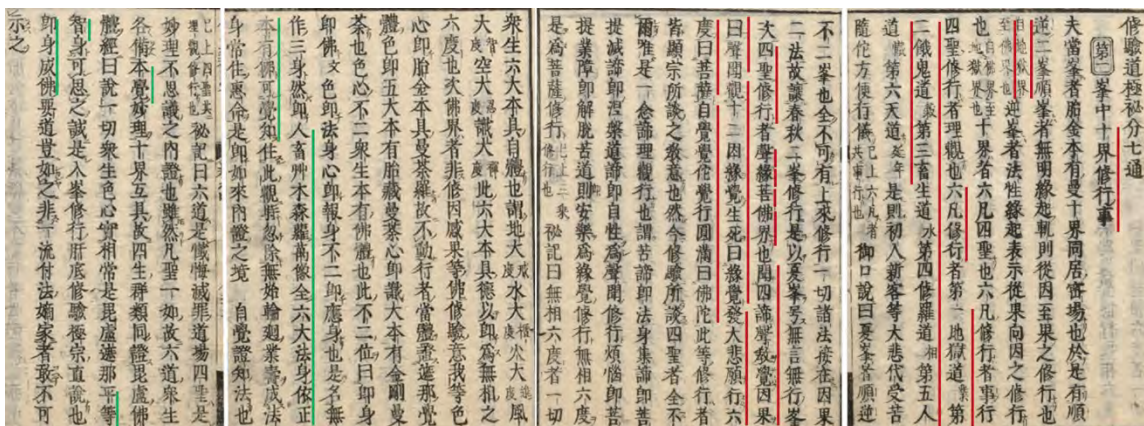 修驗道極秘分七通
第二 峯中十界修行事
夫當峯者胎金本有曼十界同居密塲也於是有順
逆二峯順峯者無明緣起軌則從因至果之修行也
自地獄界至佛界也 逆峯者法性緣起表示從果向因之修行
也 自佛界至地獄界也 十界者六凡四聖也六凡修行者事行
四聖修行者理觀也六凡修行者第一地獄道 業 第
二餓鬼道 穀 第三畜生道 水 第四修羅道 相 第五人
道 懺 第六天道 延年 是則初人新客等大悲代受苦
隨佗方便有儀 已上六凡者共事行也 御口說曰夏峯者順逆
不二峯也全不可有上來修行一切諸法接在因果
二法故讓春秋二峯修行是以夏峯号無言無行峯
次四聖修行者聲緣菩佛界也聞四諦聲敎覺因果
曰聲聞觀十二因緣覺生死曰緣覺發大悲願行六
度曰菩薩自覺覺佗覺行圓滿曰佛陀此等修行者
皆顯宗所談之敎意也然今修驗所談四聖者全不
爾唯是一念諦理觀行也謂苦諦即法身集諦即菩
提滅諦即涅槃道諦即自性爲聲聞修行煩惱即菩
提業障即解脫苦道則安樂爲緣覺修行無相六度
是爲菩薩修行 已上三乘修行也 秘記曰無相六度者一切
衆生六大本具自體也謂地大 戒度 水大 禪度 火大 風
大 空大 識大 此六大本具德以即爲無相之
六度也次佛界者非修因感果等佛修驗意我等色
心即胎金本具曼荼羅故不動行者當體證遮那覺
體色即五大本有胎藏曼荼心即識大本有金剛曼
荼也色心不二衆生本有佛體也此不二位曰即身
即佛 文 色即法身心即報身不二即應身也是名無
作三身然即人畜艸木森羅萬像全六大法身依正
本有佛可覺知住此觀時忽除無始輪廻業壽成法
身當住惠命是即如來內證之境 自覺證知法也
已上四聖共理觀修行也 秘記曰六道是懺悔滅罪道塲四聖是
妙理不思議之內證也雖然凡聖一如故六道衆生
各備本覺妙理十界互具故四生群類同證毘盧佛
體經曰說一切衆生色心實相常是毘盧遮那平等
智身可思之誠是入峯修行肝底修驗極宗直說也
即身成佛要道豈如之非一流付法嫡家者敢不可
示之